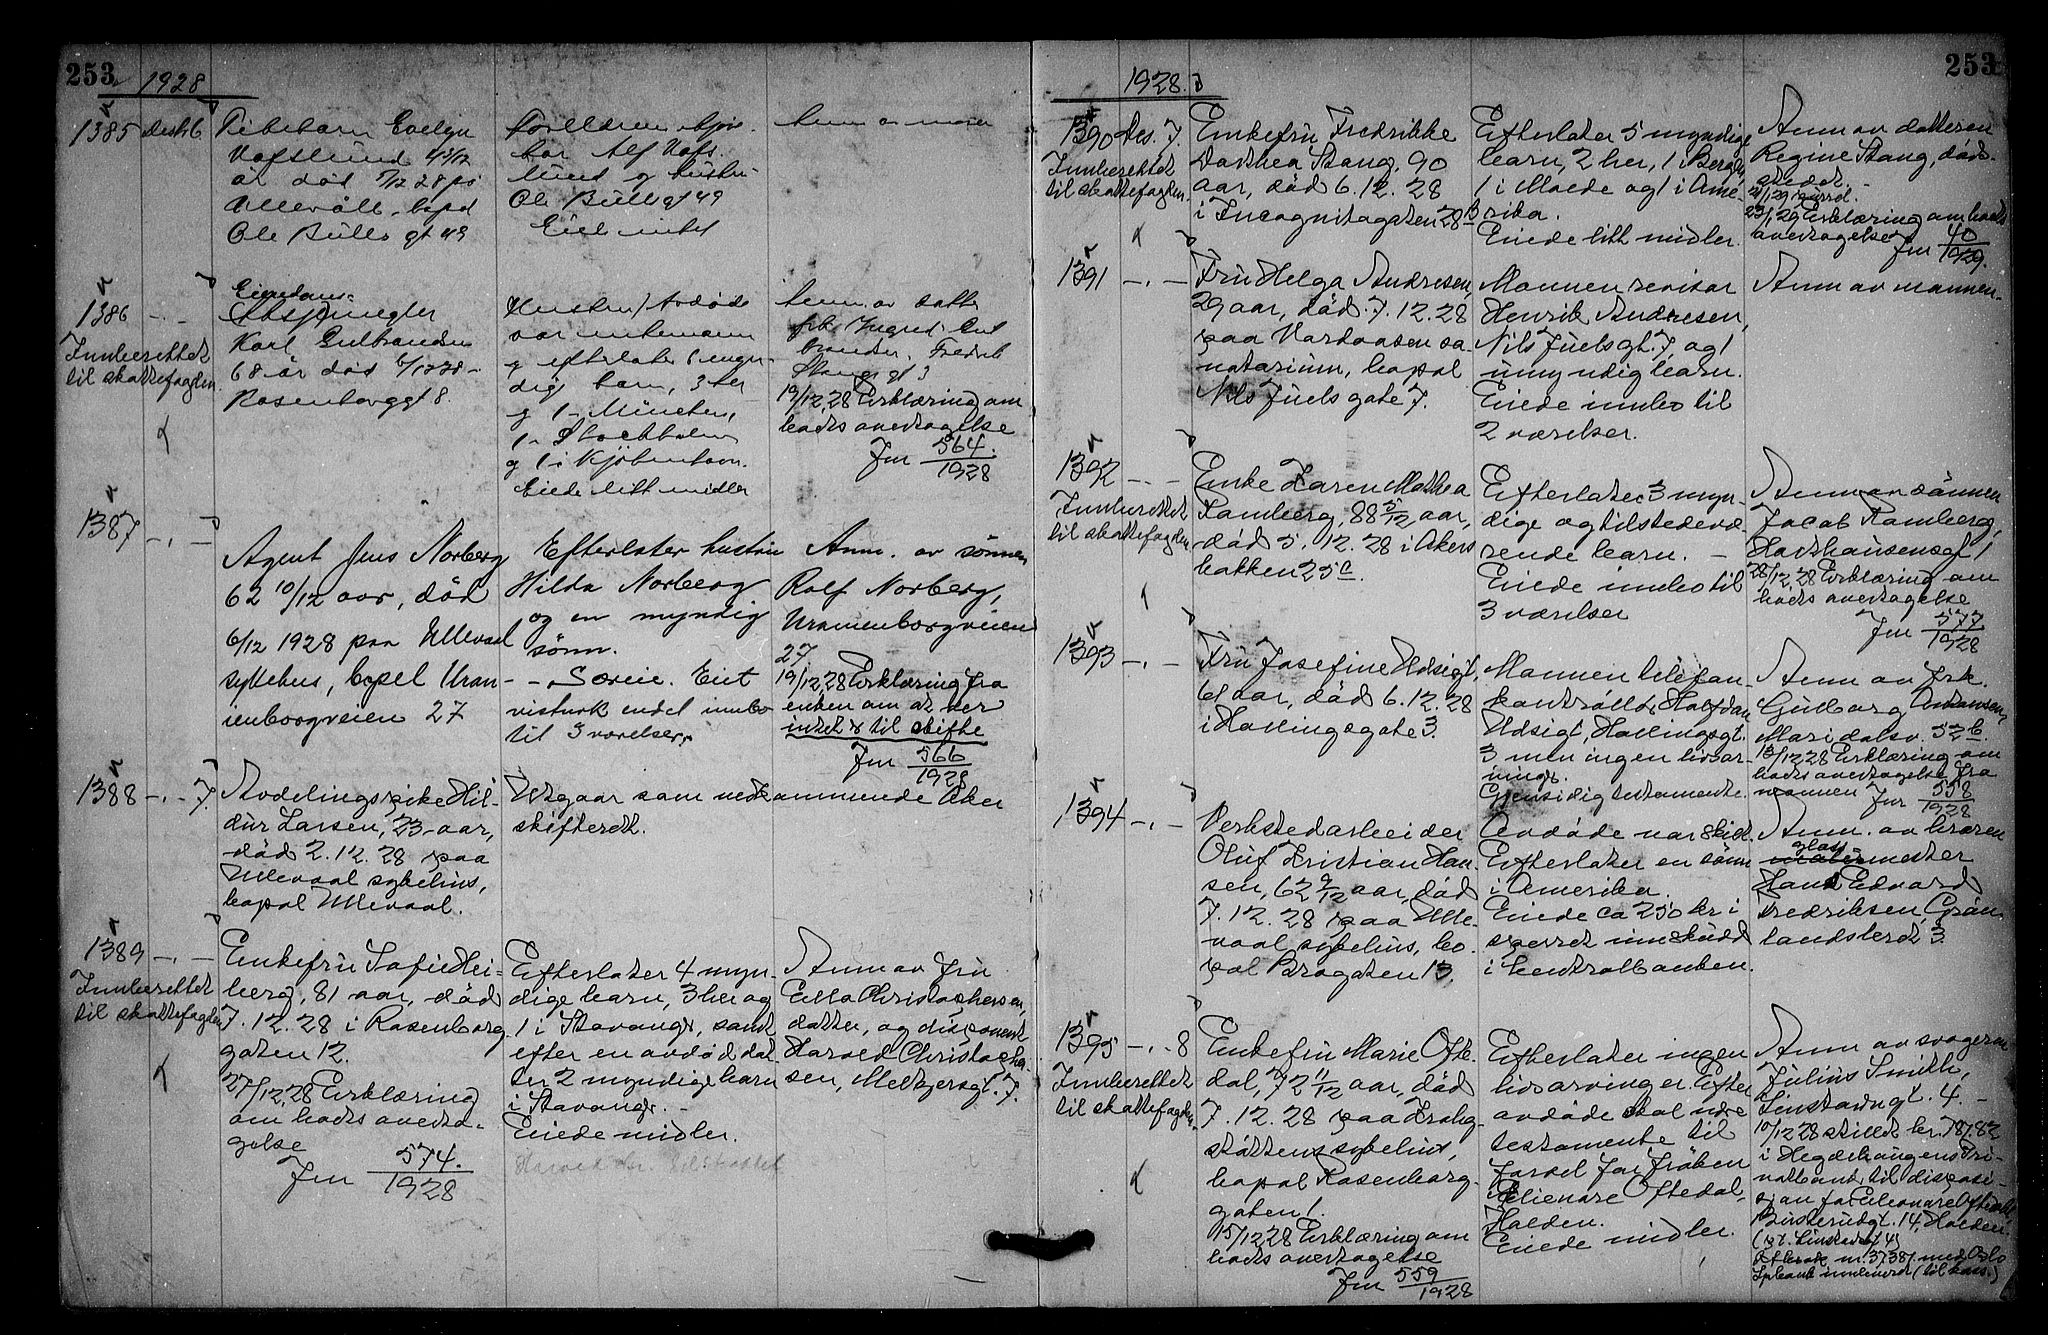 253
1928
1385 Des 6
Pikebarn Evelyn
Hafslund
år død 5/12 28 på
Ullevål, bopel
Ole Bulls gt 49
Foreldrene
Alf Hafs-
lund og hustru
Ole Bulls gt 49
Eiet intet
Anm av moren
1386 - . -
Innberettet
til skattefogden.
Eiendoms-
megler
Karl Gulbrandsen
68 år død 6/12 28 -
Rosenborggt 8.
Hustru, Avdøde
var enkemann
og efterlater 6 myn-
dig barn, 3 her
og 1 i München,
1 i Stockholm
og 1 i Kjøbenhavn.
Eiede litt midler
Anm. av datter
frk. Ingrid Gul
brandsen, Fredrik
Stangs gt 3
19/12 28 Erklæring om
boets overtagelse
Jnr 564/1928
1387 - . -
Agent Jens Norberg
62 10/12 aar, død
6/12 1928 paa Ullevaal
sykehus, bopel Uran-
ienborgveien 27
Efterlater hustru
Hilda Norberg
og en myndig
sønn.
- Særeie. Eiet
vistnok endel innbo
til 3 værelser.
Anm. av sønnen
Rolf Norberg,
Uranienborgveien
27
19/12 28 Erklæring fra
enken om at der
intet er til skifte
Jnr 566/1928
1388 - . - 7.
Avdelingspike Hil-
dur Larsen, 23 aar,
død 2. 12. 28 paa
Ullevaal sykehus,
bopal Ullevaal.
Utgaar som vedkommende Aker
skifterett.
1389 - . -
Innberettet
til skattefogden
Enkefru Sofie Hei-
berg, 81 aar, død
7. 12. 28 i Rosenborg
gaten 12.
27/12 28 Erklæring
om boets overta-
gelse
Jnr 574./1928
Efterlater 4 myn-
dige barn, 3 her og
1 i Stavanger, samt
efter en avdød dat-
ter 2 myndige barn
i Stavanger. -
Eiede midler.
Anm av Fru
Ella Christophersen,
datter, og disponent
Harold Christopher-
sen, Meltzersgt. 7.
253
1928.
1390 Des. 7.
Innberettet
til skattefogden.
Enkefru Fredrikke
Dorthea Stang, 90
aar, død 6. 12. 28
i Incognitogaten 28 B
Efterlater 5 myndige
barn, 2 her, 1 i Bergen,
1 i Molde og 1 i Ame-
rika.
Eiede litt midler.
Anm av datteren
Regine Stang, døds-
stedet. -
23/1 29 Erklæring om boets
overtagelse Jnr 40/1929.
1391 - . -
Fru Helga Andresen,
29 aar, død 7. 12. 28
paa Vardaasen sa-
natorium, bopal
Nils Juels gate 7.
Mannen revisor
Henrik Andresen,
Nils Juels gt. 7, og 1
umyndig barn.
Eiede innbo til
2 værelser.
Anm av mannen.
1392 - . -
Innberettet
til skattefogden
Enke Karen Mathea
Ramberg, 88 5/12 aar,
død 5. 12. 28 i Akers
bakken 25 c.
Efterlater 3 myn-
dige og tilstedevæ-
rende barn. -
Eiede innbo til
3 værelser
Anm av sønnen
Jacob Ramberg,
Haxthausensgt 1
28/12 28 Erklæring om
boets overtagelse
Jnr 577/1928
1393 - . -
Fru Josefine Udsigt,
61 aar, død 6. 12. 28
i Hallingsgate 3.
Mannen telefon-
kontrollør Halfdan
Udsigt, Hallingsgt.
3 men ingen livsar-
vinger.
Gjensidig testamente.
Anm av Frk.
Gudborg Antonsen,
Maridalsv. 52 b.
13/12 28 Erklæring om
boets overtagelse fra
mannen Jnr 558/1928
1394 - . -
Verkstedarbeider
Oluf Kristian Han-
sen, 62 9/12 aar, død
7. 12. 28 paa Ulle-
vaal sykehus, bo-
pal Brogaten 13.
Avdøde var skilt.
Efterlater en sønn
i Amerika.
Eiede ca 250 kr i
sperret innskudd
i Centralbanken.
Anm. av broren
glass-
mester
Hans Edvard
Fredriksen, Grøn-
landsleret 3.
1395 - . - 8
Innberettet
til skattefogden.
Enkefru Marie Ofte-
dal, 72 11/12 aar, død
7. 12. 28 paa Krohg-
støttens sykehus,
bopal Rosenborg-
gaten 1.
15/12 28 Erklæring om
boets overtagelse
Jnr 559/1928
Efterlater ingen
livsarvinger. Efter
avdøde skal være
testamente til
fordel for frøken
Elienore Oftedal,
Halden.
Eiede midler.
Anm av svogeren
Julius Smith,
Linstowsgt. 4. -
10/12 28 stillet kr. 787.82
i Hegdehaugens Pri-
vatbank til disposi-
sjon for Eleonore Oftedal
14, Halden.